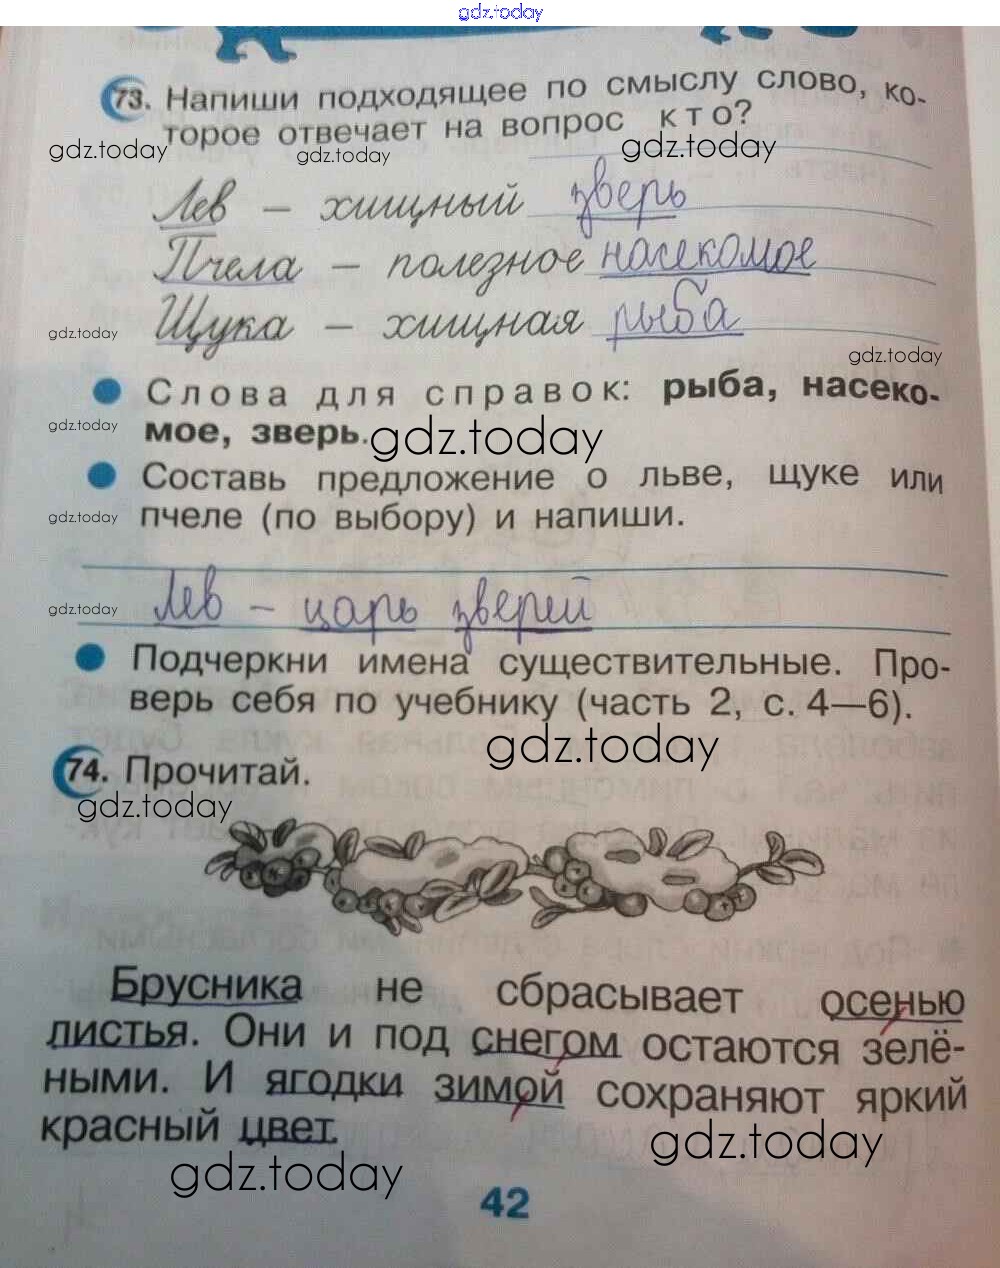 gdz.today
73. Напиши подходящее по смыслу слово, ко-
торое отвечает на вопрос кто?
gdz.today gdz.today gdz.today
Лев – хищный зверь
Пчела – полезное насекомое
Щука – хищная рыба
gdz.today gdz.today
Слова для справок: рыба, насеко-
мое, зверь.
gdz.today gdz.today
Составь предложение о льве, щуке или
пчеле (по выбору) и напиши.
gdz.today
Лев – царь зверей
gdz.today
Подчеркни имена существительные. Про-
верь себя по учебнику (часть 2, с. 4—6).
gdz.today
74. Прочитай.
gdz.today
Брусника не сбрасывает осенью
листья. Они и под снегом остаются зелё-
ными. И ягодки зимой сохраняют яркий
красный цвет.
gdz.today gdz.today
42